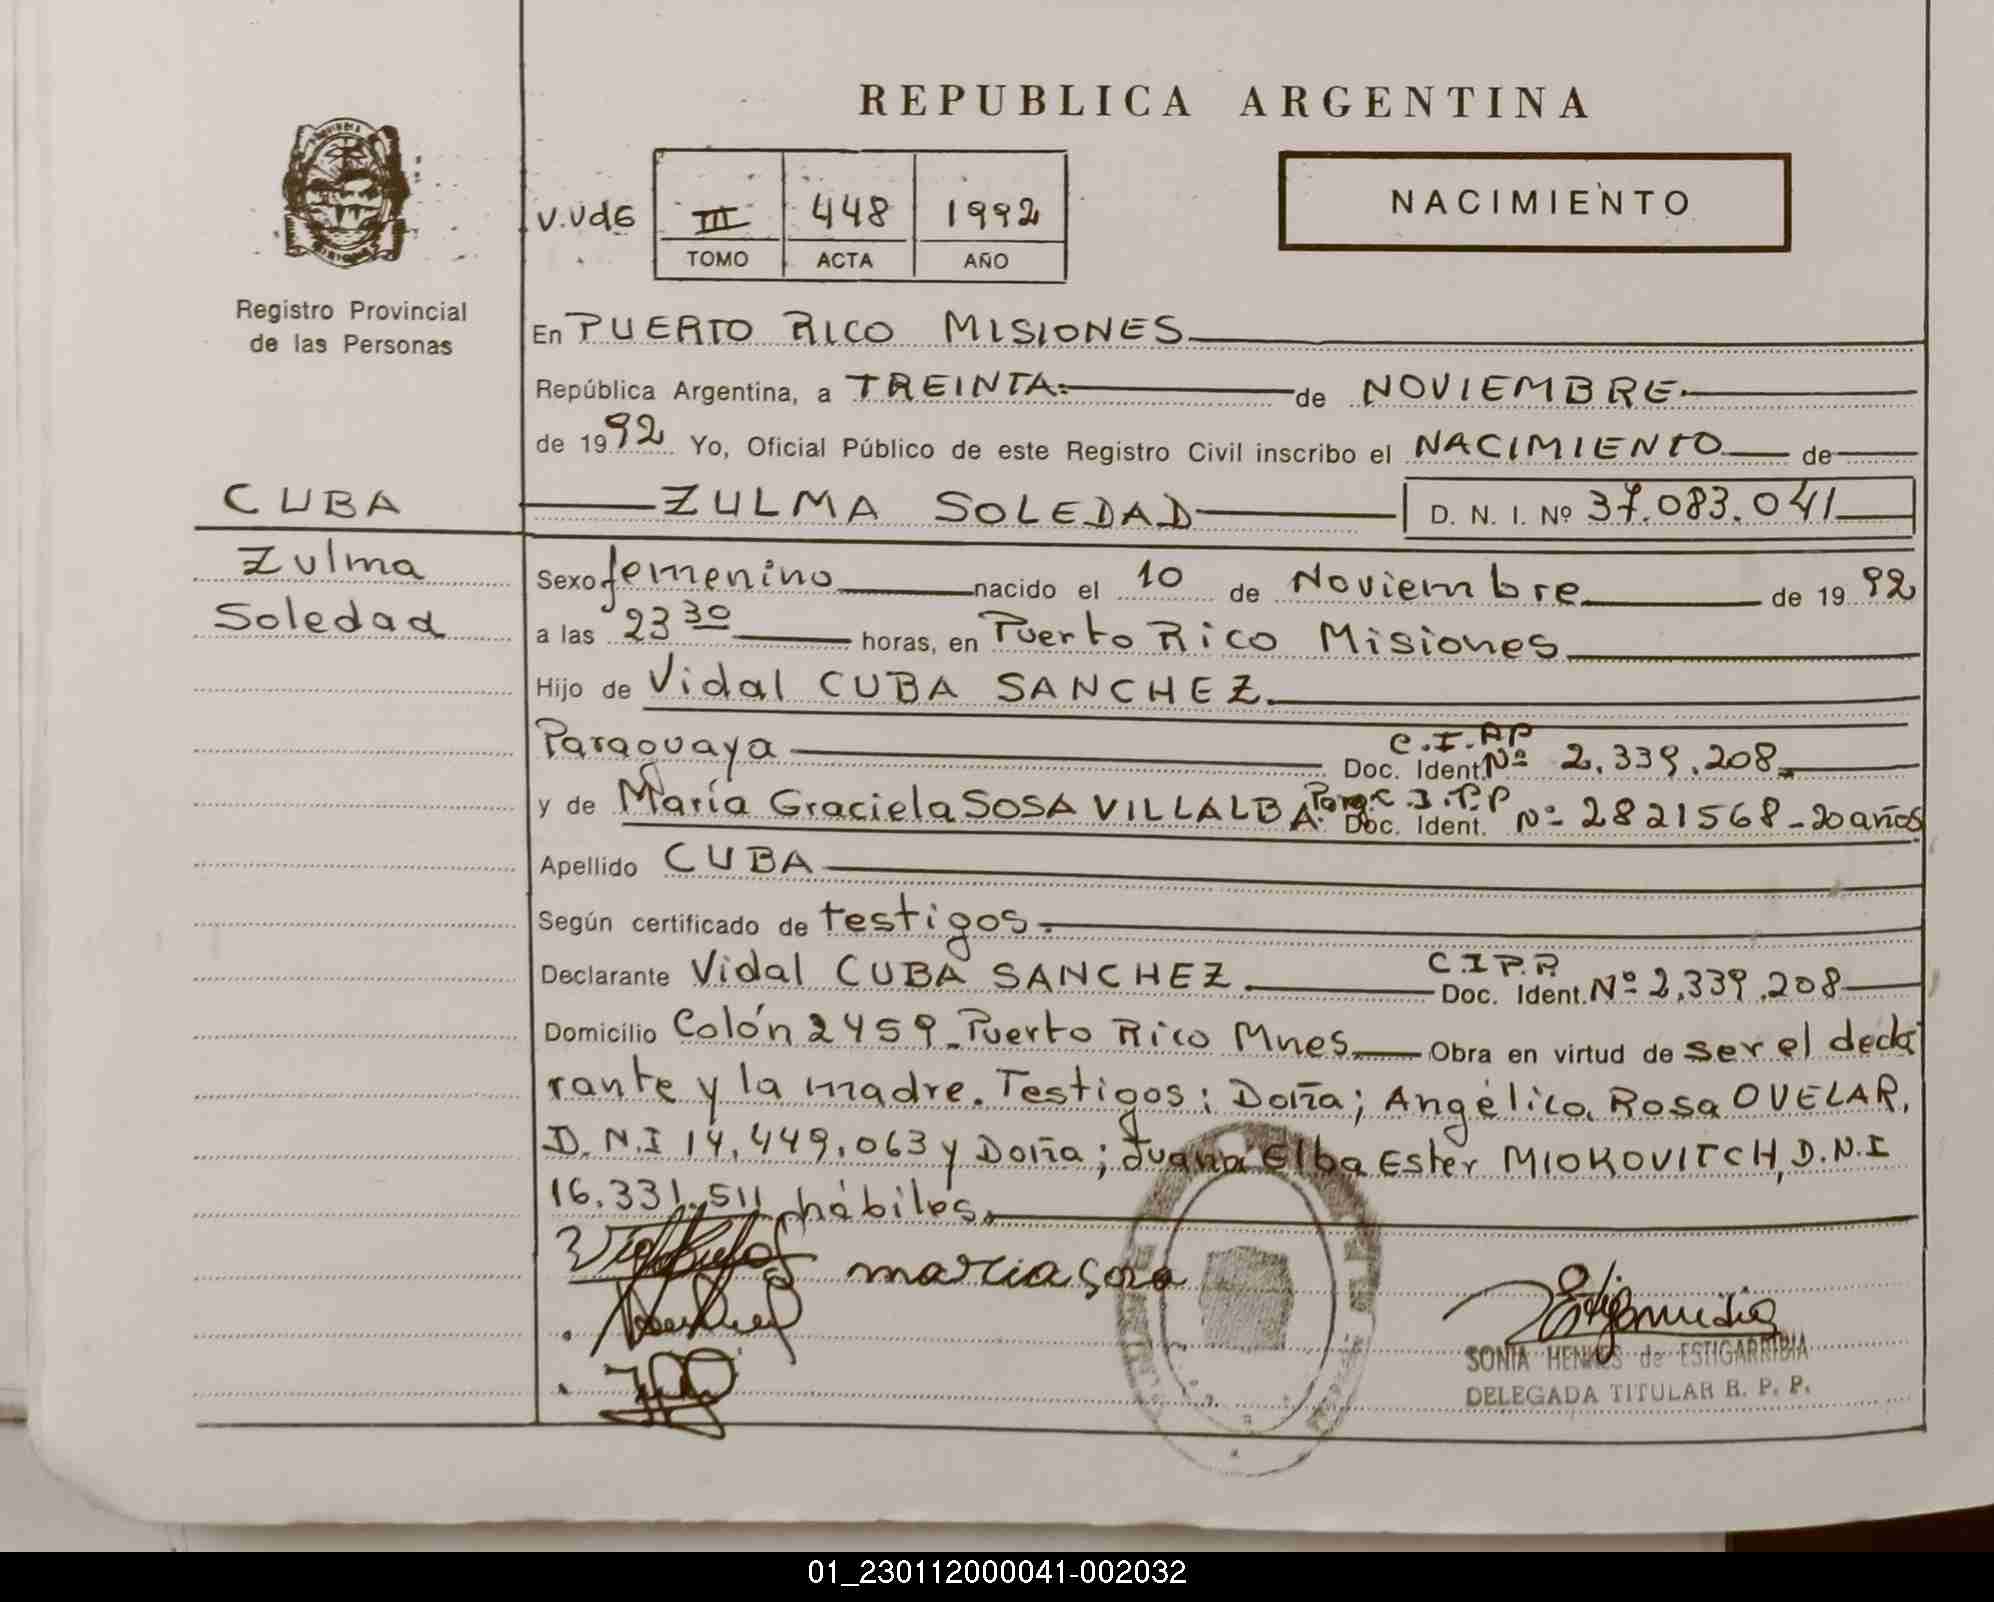 REPUBLICA ARGENTINA
NACIMIENTO
V.Ud6 III 448 1992
TOMO ACTA AÑO
Registro Provincial
de las Personas
En PUERTO RICO MISIONES
República Argentina, a TREINTA de NOVIEMBRE
de 1992 Yo, Oficial Público de este Registro Civil inscribo el NACIMIENTO de
CUBA
ZULMA SOLEDAD D. N. I. Nº 37.083.041
Zulma
Soledad
Sexo femenino nacido el 10 de Noviembre de 1992
a las 23 30 horas, en Puerto Rico Misiones
Hijo de Vidal CUBA SANCHEZ
Paraguaya C.I. Doc. Ident. Nº 2.339.208
y de María Graciela SOSA VILLALBA Parag. C.I.P.P Doc. Ident. Nº 2821568-20 años
Apellido CUBA
Según certificado de testigos.
Declarante Vidal CUBA SANCHEZ C.I P.P. Doc. Ident. Nº 2.339.208
Domicilio Colón 2459 Puerto Rico Mnes Obra en virtud de ser el decla
rante y la madre. Testigos; Doña; Angélica Rosa OVELAR,
D.N.I 14.449.063 y Doña; Juana Elba Ester MIOKOVITCH, D.N.I
16.331.511 hábiles.
maria sosa
SONIA HENNES de ESTIGARRIBIA
DELEGADA TITULAR R. P. P.
01_230112000041-002032